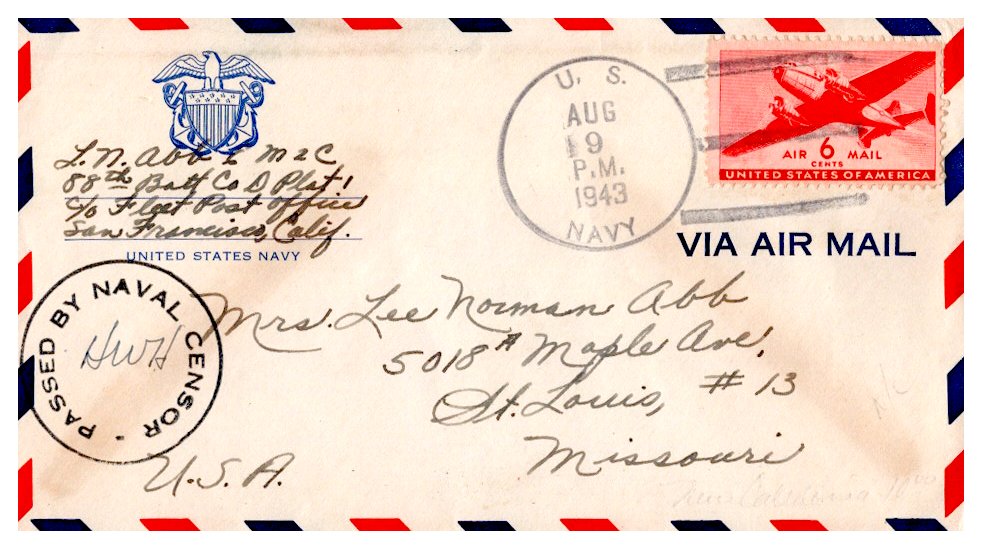 L. N. Abb M 2 C
88th Batt Co D Plat 1
c/o Fleet Post Office
San Francisco, Calif.
UNITED STATES NAVY
U. S.
AUG
9
P.M.
1943
NAVY
AIR 6 MAIL
CENTS
UNITED STATES OF AMERICA
VIA AIR MAIL
PASSED BY NAVAL CENSOR
HWH
Mrs. Lee Norman Abb
5018A Maple Ave,
St. Louis, # 13
Missouri
U.S.A.
New Caledonia